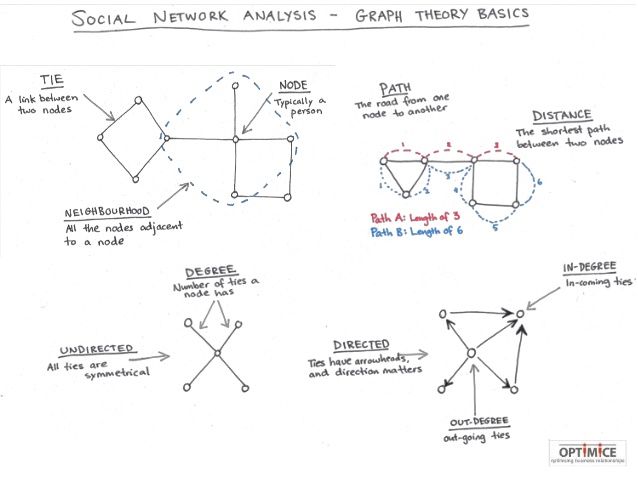 SOCIAL NETWORK ANALYSIS – GRAPH THEORY BASICS
TIE
A link between
two nodes
NODE
Typically a
person
NEIGHBOURHOOD
All the nodes adjacent
to a node
PATH
The road from one
node to another
DISTANCE
The shortest path
between two nodes
1 2 3
1 2 3 4 5 6
Path A: Length of 3
Path B: Length of 6
DEGREE
Number of ties a
node has
UNDIRECTED
All ties are
symmetrical
DIRECTED
Ties have arrowheads,
and direction matters
IN-DEGREE
In-coming ties
OUT-DEGREE
out-going ties
OPTIMICE
optimising business relationships